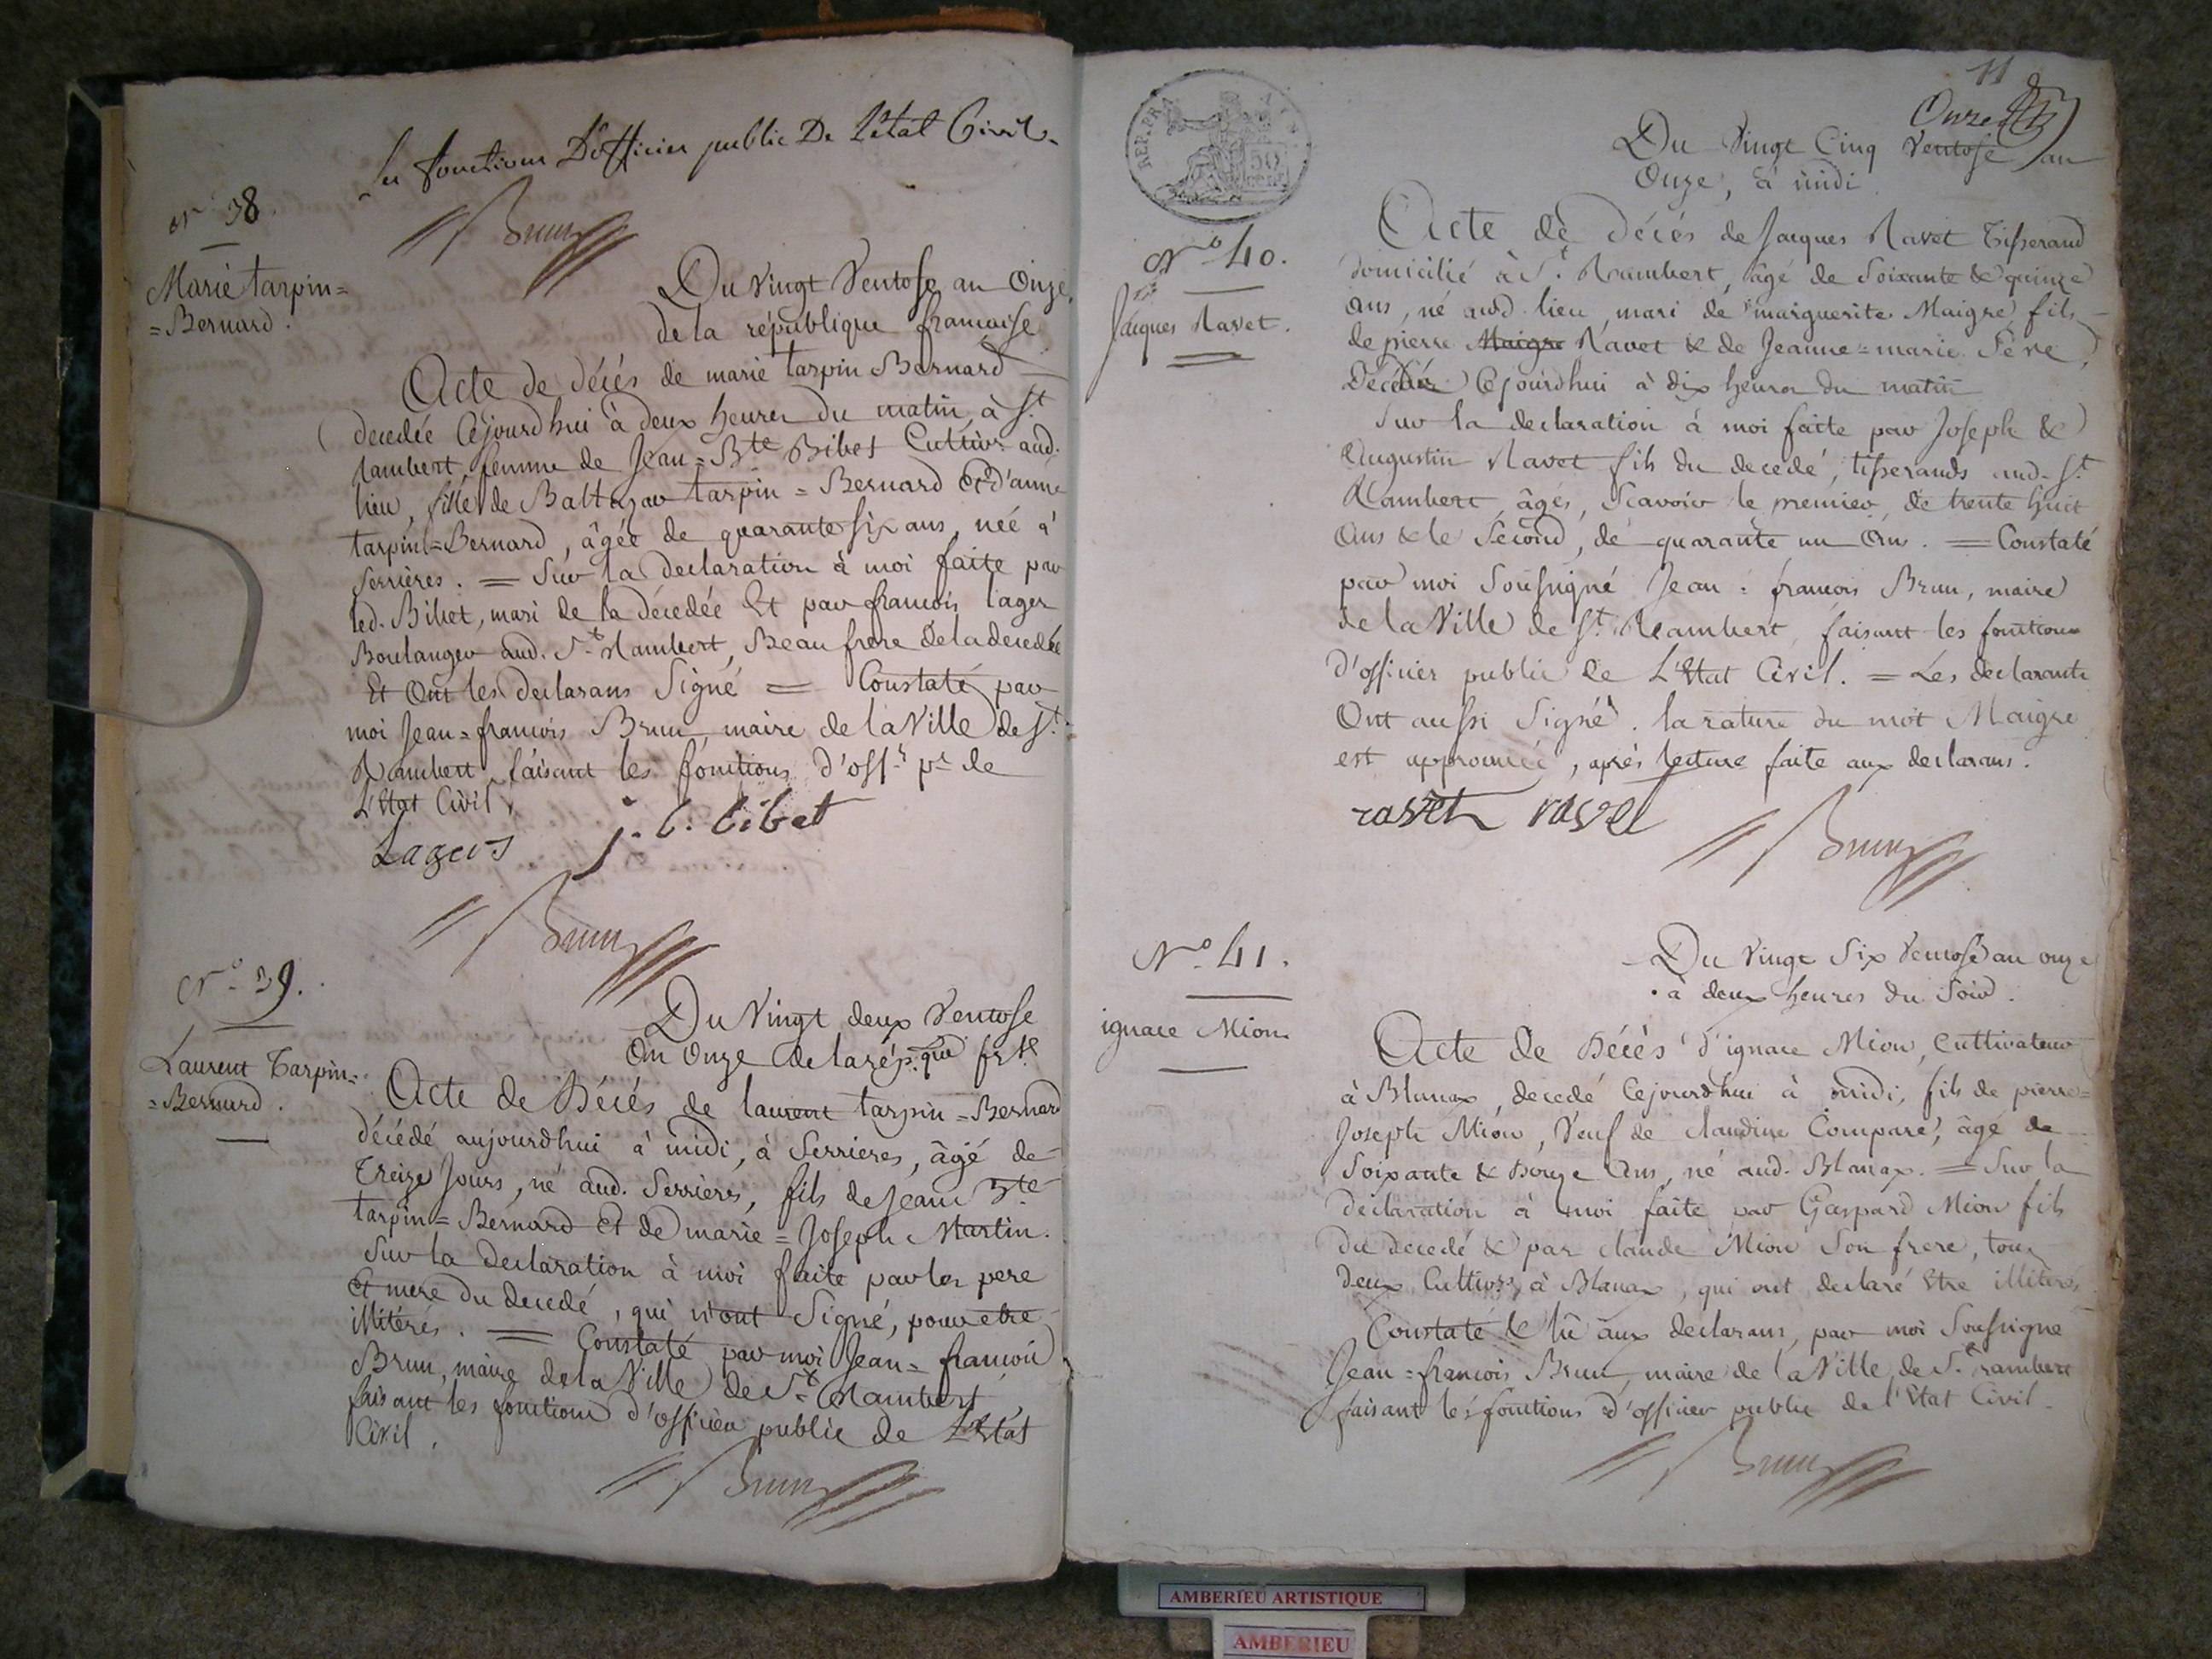 les fonctions D'officier public De L'état Civil.
Brun
N° 38.
Marie tarpin=
=Bernard.
Du Vingt Ventose an Onze,
de la république francaise
Acte de décés de marie tarpin Bernard
decedée Cejourdhui à deux heures du matin, à St.
Rambert, femme de Jean=Bte Bibet Cultivr. aud.
lieu, fille de Baltazar tarpin=Bernard Et d'anne
tarpin=Bernard, âgée de quarante six ans, née à
Serrières. = Sur la declaration à moi faite par
led. Bibet, mari de la décedée Et par francois lager
Boulanger aud. St. Rambert, Beau frere de la decedée
Et Ont les declarans Signé = Constaté par
moi Jean=francois Brun, maire de la Ville de St.
Rambert, faisant les fonctions d'offr. pc. de
L'Etat Civil.
Lagers
j. b. bibet
Brun
N° 39.
Laurent Tarpin=
=Bernard.
Du Vingt deux Ventose
an Onze de la rép.que frse
Acte de Décés de laurent tarpin=Bernard
décédé aujourdhui à midi, à Serrieres, âgé de
Treize Jours, né aud. Serrieres, fils de Jean Bte
tarpin=Bernard Et de marie=Joseph Martin.
Sur la declaration à moi faite par les pere
Et mere du decedé, qui n'ont Signé, pour etre
illitérés. = Constaté par moi Jean=francois
Brun, maire de la Ville de St. Rambert,
faisant les fonctions d'officier public de L'Etat
Civil.
Brun
11
Onze
REP. FRA
50
Du Vingt Cinq Ventose an
Onze, à midi
N° 40.
Jacques Ravet.
Acte de décés de Jacques Ravet Tisserand
domicilié à St. Rambert, âgé de Soixante & quinze
ans, né aud lieu, mari de marguerite Maigre, fils
de pierre Maigre Ravet & de Jeanne=marie Féne,
Décédé Cejourdhui à dix heures du matin
Sur la declaration à moi faite par Joseph &
Augustin Ravet fils du decedé, tisserands aud. St.
Rambert, âgés, Scavoir le premier, de trente huit
ans & le Second, de quarante un Ans. = Constaté
par moi Soussigné Jean=francois Brun, maire
de la Ville de St. Rambert, faisant les fonctions
d'officier public de L'Etat Civil. = Les declarants
Ont aussi Signé. la rature du mot Maigre
est approuvée, après lecture faite aux declarans.
ravet ravet
Brun
N° 41.
ignace Mion
Du Vingt Six Ventose an onze
à deux heures du Soir.
Acte de Décès d'ignace Mion, Cultivateur
à Blanax, decedé Cejourdhui à midi, fils de pierre=
Joseph Mion, Veuf de claudine Comparé, âgé de
Soixante & Douze Ans, né aud. Blanax. = Sur la
declaration à moi faite par Gaspard Mion fils
du decedé & par claude Mion Son frere, tous
deux Cultivrs. à Blanax, qui ont declaré Etre illitérés
Constaté & lû aux declarans, par moi Soussigné
Jean=francois Brun, maire de la Ville de St. rambert
faisant les fonctions d'officier public de l'Etat Civil.
Brun
AMBERIEU ARTISTIQUE
AMBERIEU